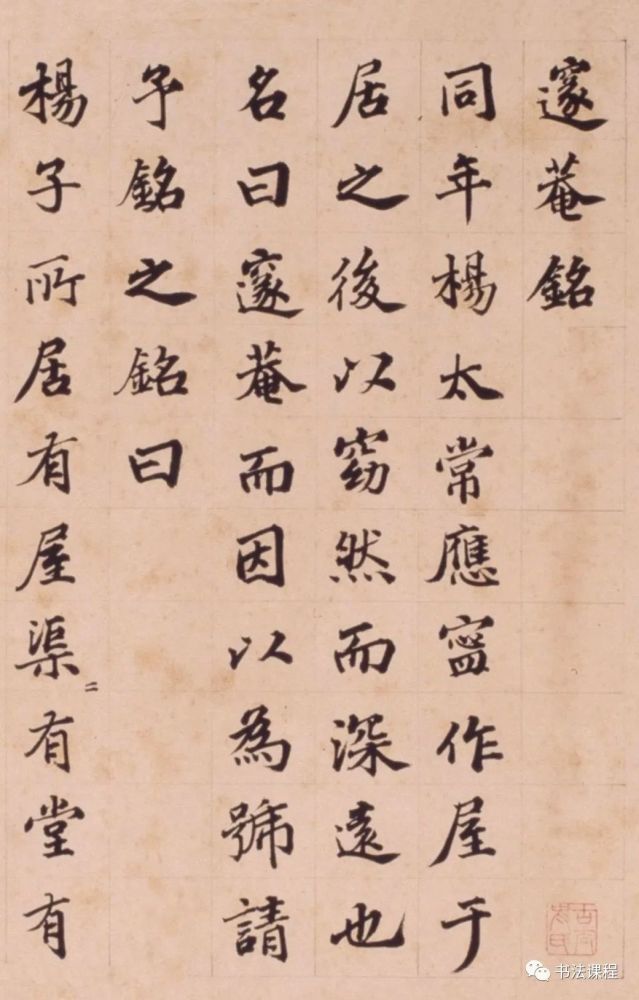 邃菴銘
同年楊太常應寧作屋于
居之後以窈然而深遠也
名曰邃菴而因以為號請
予銘之銘曰
楊子所居有屋渠〻有堂有
书法课程